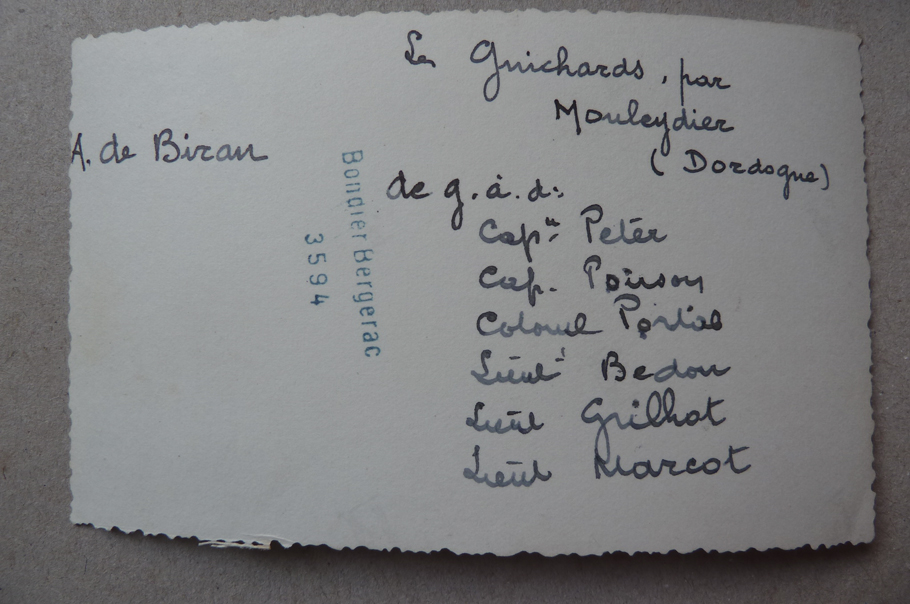 Les Guichards, par
Mouleydier
(Dordogne)
A. de Biran
de g. à. d:
Capne Peter
Cap. Poirson
Colonel Portal
Lieutt Bedou
Lieut Grilhot
Lieut Marcot
Bondier Bergerac
3594